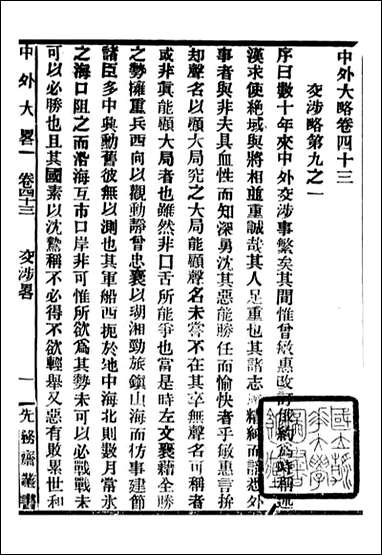 中外大略卷四十三
交涉略第九之一
序曰數十年來中外交涉事繁矣其間惟曾敏惠改訂俄約為時稱述
漢求使絕域與將相並重誠哉其人足重也其諸志精純而諳悉外
事者與非夫具血性而知深勇沈其惡能勝任而愉快者乎敏惠言拚
却聲名以顧大局究之大局能顧聲名未嘗不在其卒無聲名可稱者
或非眞能顧大局者也雖然非口舌所能爭也當是時左文襄藉全勝
之勢擁重兵西向以觀動靜曾忠襄以瑚湘勁旅鎭山海而彷事建節
諸臣多中興勳舊彼無以測也其軍船西扼於地中海北則數月當氷
之海口阻之而沿海互市口岸非可惟所欲為其勢未可以必戰戰未
可以必勝也且其國素以沈鷙稱不必得不欲輕舉又惡有敗累世和
中外大畧 卷四十三 交涉畧 一 先務齋叢書